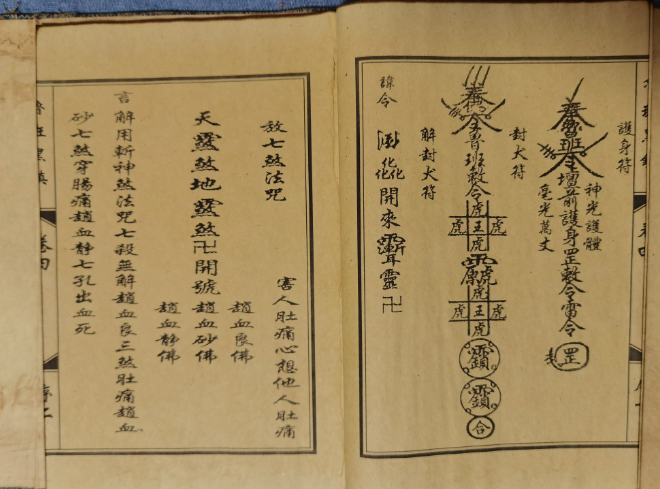 護身符
神光護體
毫光萬丈
奉魯班令壇前護身罡敕令雷令
罡
封犬符
奉
令魯班敕令
虎
虎王虎
虎
虎
虎王虎
虎
合
解封犬符
諱令
開來
卍
放七煞法咒
害人肚痛心想他人肚痛
天靈煞地靈煞卍開號
趙血良佛
趙血砂佛
趙血静佛
言解用斬神煞法咒七殺無解趙血良三煞肚痛趙血
砂七煞穿腸痛趙血静七孔出血死
卷四